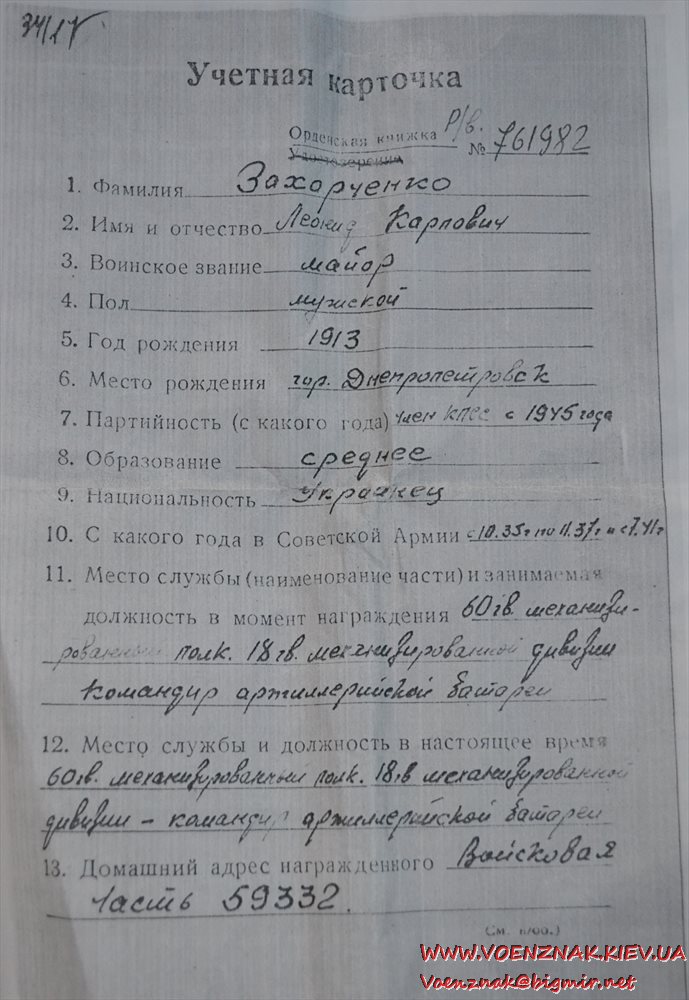 34/17
Учетная карточка
Р/в.
Орденская книжка № 761982
Удостоверения
1. Фамилия Захарченко
2. Имя и отчество Леонид Карпович
3. Воинское звание майор
4. Пол мужской
5. Год рождения 1913
6. Место рождения гор. Днепропетровск
7. Партийность (с какого года) член КПСС с 1945 года
8. Образование среднее
9. Национальность Украинец
10. С какого года в Советской Армии с 10.35г по 11.37г и с 7.41г
11. Место службы (наименование части) и занимаемая
должность в момент награждения 60 гв. механизи-
рованный полк. 18 гв. механизированной дивизии
командир артиллерийской батареи
12. Место службы и должность в настоящее время
60 гв. механизированный полк. 18 гв механизированной
дивизии – командир артиллерийской батареи
13. Домашний адрес награжденного Войсковая
часть 59332.
См. н/об.)
WWW.VOENZNAK.KIEV.UA
Voenznak@bigmir.net